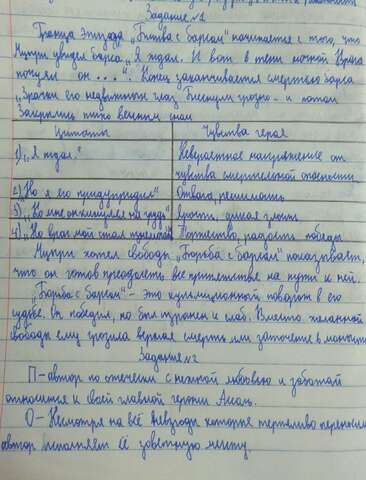 Задание №1
Граница эпизода „Битва с барсом" начинается с того, что
Мцыри увидел барса „Я ждал. И вот в тени ночной Врага
почуял он ...". Конец заканчивается смертью барса
„Зрачки его недвижных глаз Блеснули грозно - и потом
Закрылись тихо вечным сном
Цитаты
Чувства героя
1) „Я ждал."
Невероятное напряжение от
чувства смертельной опасности
2) Но я его предупредил"
Отвага, решимость
3) „Ко мне он кинулся на грудь"
Ярость, дикая злость
4) „Но враг мой стал изнемогать"
Торжество, радость победы
Мцыри хотел свободы „Борьба с барсом" показывает,
что он готов преодолеть все препятствия на пути к ней.
„Борьба с барсом" - это кульмиционный поворот в его
судьбе. Он победил, но был изранен и слаб. Вместо желанной
свободы ему грозила верная смерть или заточение в монастыре
Задание №2
П - автор по отечески с нежной любовью и заботой
относится к своей главной героини Ассоль.
О - Несмотря на всё невзгоды которые терпеливо переносила
автор исполняет её заветную мечту.